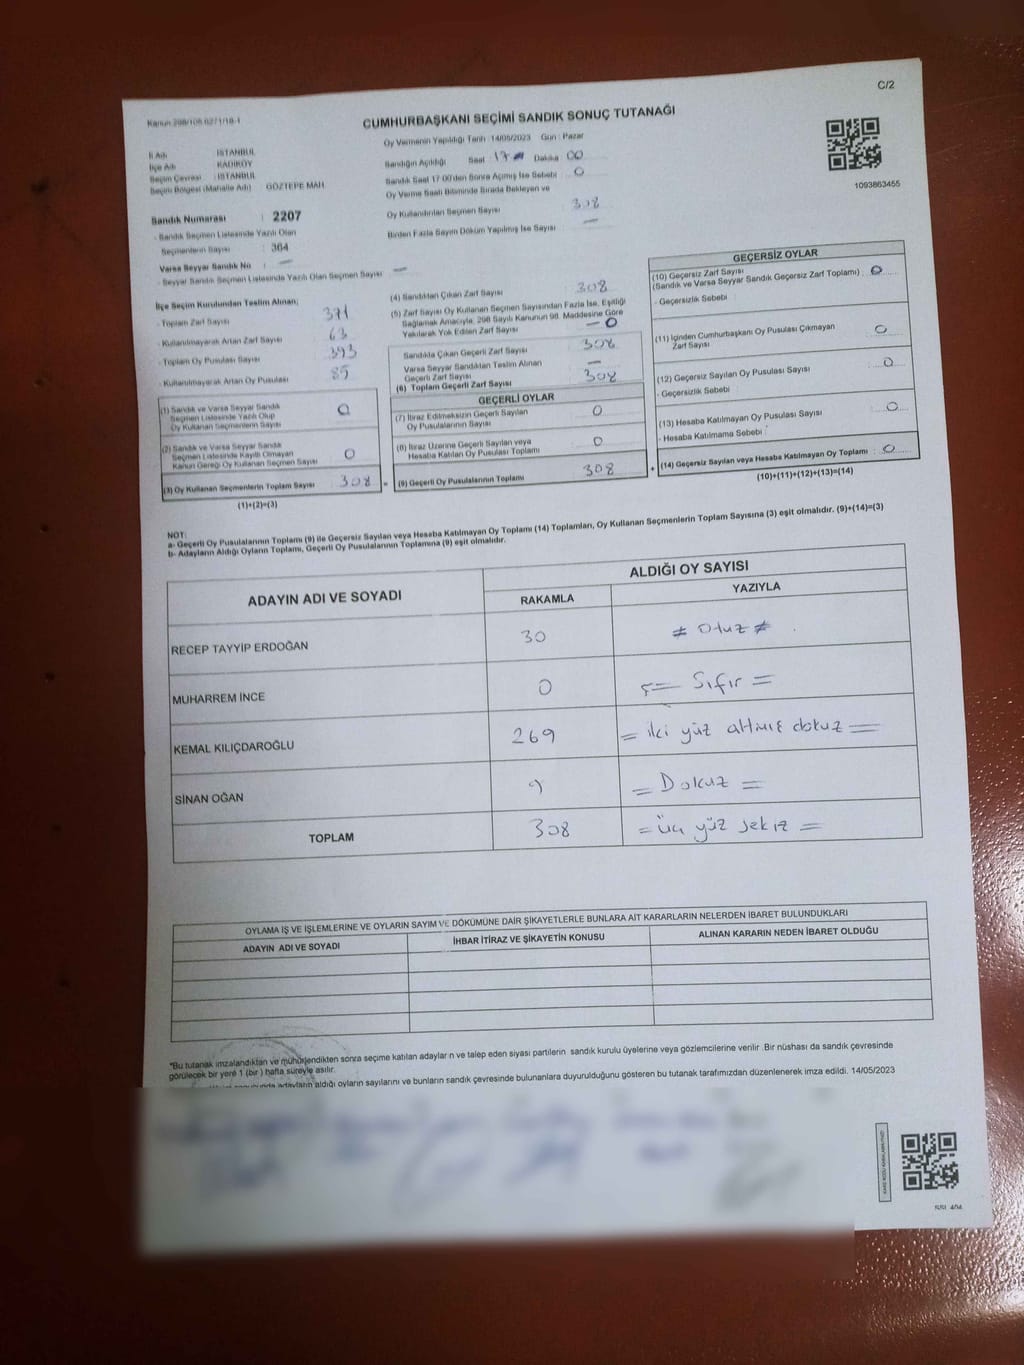 C/2
Kanun 298/105
CUMHURBAŞKANI SEÇİMİ SANDIK SONUÇ TUTANAĞI
Oy Vermenin Yapıldığı Tarih :14/05/2023 Gün : Pazar
İl Adı : İSTANBUL
İlçe Adı : KADIKÖY
Seçim Çevresi : İSTANBUL
Seçim Bölgesi (Mahalle Adı) : GÖZTEPE MAH.
Sandığın Açıldığı Saat : 17 Dakika 00
Sandık Saat 17:00'den Sonra Açılmış İse Sebebi : 0
Oy Verme Saati Bitiminde Sırada Bekleyen ve
Oy Kullandırılan Seçmen Sayısı : 308
Birden Fazla Sayım Döküm Yapılmış İse Sayısı : —
1093863455
Sandık Numarası : 2207
- Sandık Seçmen Listesinde Yazılı Olan
Seçmenlerin Sayısı : 364
Varsa Seyyar Sandık No : —
- Seyyar Sandık Seçmen Listesinde Yazılı Olan Seçmen Sayısı : —
İlçe Seçim Kurulundan Teslim Alınan;
- Toplam Zarf Sayısı : 371
- Kullanılmayarak Artan Zarf Sayısı : 63
- Toplam Oy Pusulası Sayısı : 393
- Kullanılmayarak Artan Oy Pusulası : 85
(1) Sandık ve Varsa Seyyar Sandık
Seçmen Listesinde Yazılı Olup
Oy Kullanan Seçmenlerin Sayısı : 0
(2) Sandık ve Varsa Seyyar Sandık
Seçmen Listesinde Kayıtlı Olmayan
Kanun Gereği Oy Kullanan Seçmen Sayısı : 0
(3) Oy Kullanan Seçmenlerin Toplam Sayısı : 308 =
(1)+(2)=(3)
(4) Sandıktan Çıkan Zarf Sayısı : 308
(5) Zarf Sayısı Oy Kullanan Seçmen Sayısından Fazla İse, Eşitliği
Sağlamak Amacıyla, 298 Sayılı Kanunun 98. Maddesine Göre
Yakılarak Yok Edilen Zarf Sayısı : — 0
Sandıkta Çıkan Geçerli Zarf Sayısı : 308
Varsa Seyyar Sandıktan Teslim Alınan
Geçerli Zarf Sayısı : —
(6) Toplam Geçerli Zarf Sayısı : 308
GEÇERLİ OYLAR
(7) İtiraz Edilmeksizin Geçerli Sayılan
Oy Pusulalarının Sayısı : 0
(8) İtiraz Üzerine Geçerli Sayılan veya
Hesaba Katılan Oy Pusulası Toplamı : 0
(9) Geçerli Oy Pusulalarının Toplamı : 308 +
GEÇERSİZ OYLAR
(10) Geçersiz Zarf Sayısı
(Sandık ve Varsa Seyyar Sandık Geçersiz Zarf Toplamı) : 0
- Geçersizlik Sebebi :
(11) İçinden Cumhurbaşkanı Oy Pusulası Çıkmayan
Zarf Sayısı : 0
(12) Geçersiz Sayılan Oy Pusulası Sayısı : 0
- Geçersizlik Sebebi :
(13) Hesaba Katılmayan Oy Pusulası Sayısı : 0
- Hesaba Katılmama Sebebi :
(14) Geçersiz Sayılan veya Hesaba Katılmayan Oy Toplamı : 0
(10)+(11)+(12)+(13)=(14)
NOT:
a- Geçerli Oy Pusulalarının Toplamı (9) ile Geçersiz Sayılan veya Hesaba Katılmayan Oy Toplamı (14) Toplamları, Oy Kullanan Seçmenlerin Toplam Sayısına (3) eşit olmalıdır. (9)+(14)=(3)
b- Adayların Aldığı Oyların Toplamı, Geçerli Oy Pusulalarının Toplamına (9) eşit olmalıdır.
ADAYIN ADI VE SOYADI
ALDIĞI OY SAYISI
RAKAMLA YAZIYLA
RECEP TAYYİP ERDOĞAN 30 ≠ Otuz ≠
MUHARREM İNCE 0 = Sıfır =
KEMAL KILIÇDAROĞLU 269 = iki yüz altmış dokuz =
SİNAN OĞAN 9 = Dokuz =
TOPLAM 308 = üç yüz sekiz =
OYLAMA İŞ VE İŞLEMLERİNE VE OYLARIN SAYIM VE DÖKÜMÜNE DAİR ŞİKAYETLERLE BUNLARA AİT KARARLARIN NELERDEN İBARET BULUNDUKLARI
ADAYIN ADI VE SOYADI İHBAR İTİRAZ VE ŞİKAYETİN KONUSU ALINAN KARARIN NEDEN İBARET OLDUĞU
*Bu tutanak imzalandıktan ve mühürlendikten sonra seçime katılan adaylar ın ve talep eden siyasi partilerin sandık kurulu üyelerine veya gözlemcilerine verilir .Bir nüshası da sandık çevresinde
görülecek bir yere 1 (bir ) hafta süreyle asılır.
adayların aldığı oyların sayılarını ve bunların sandık çevresinde bulunanlara duyurulduğunu gösteren bu tutanak tarafımızdan düzenlenerek imza edildi. 14/05/2023